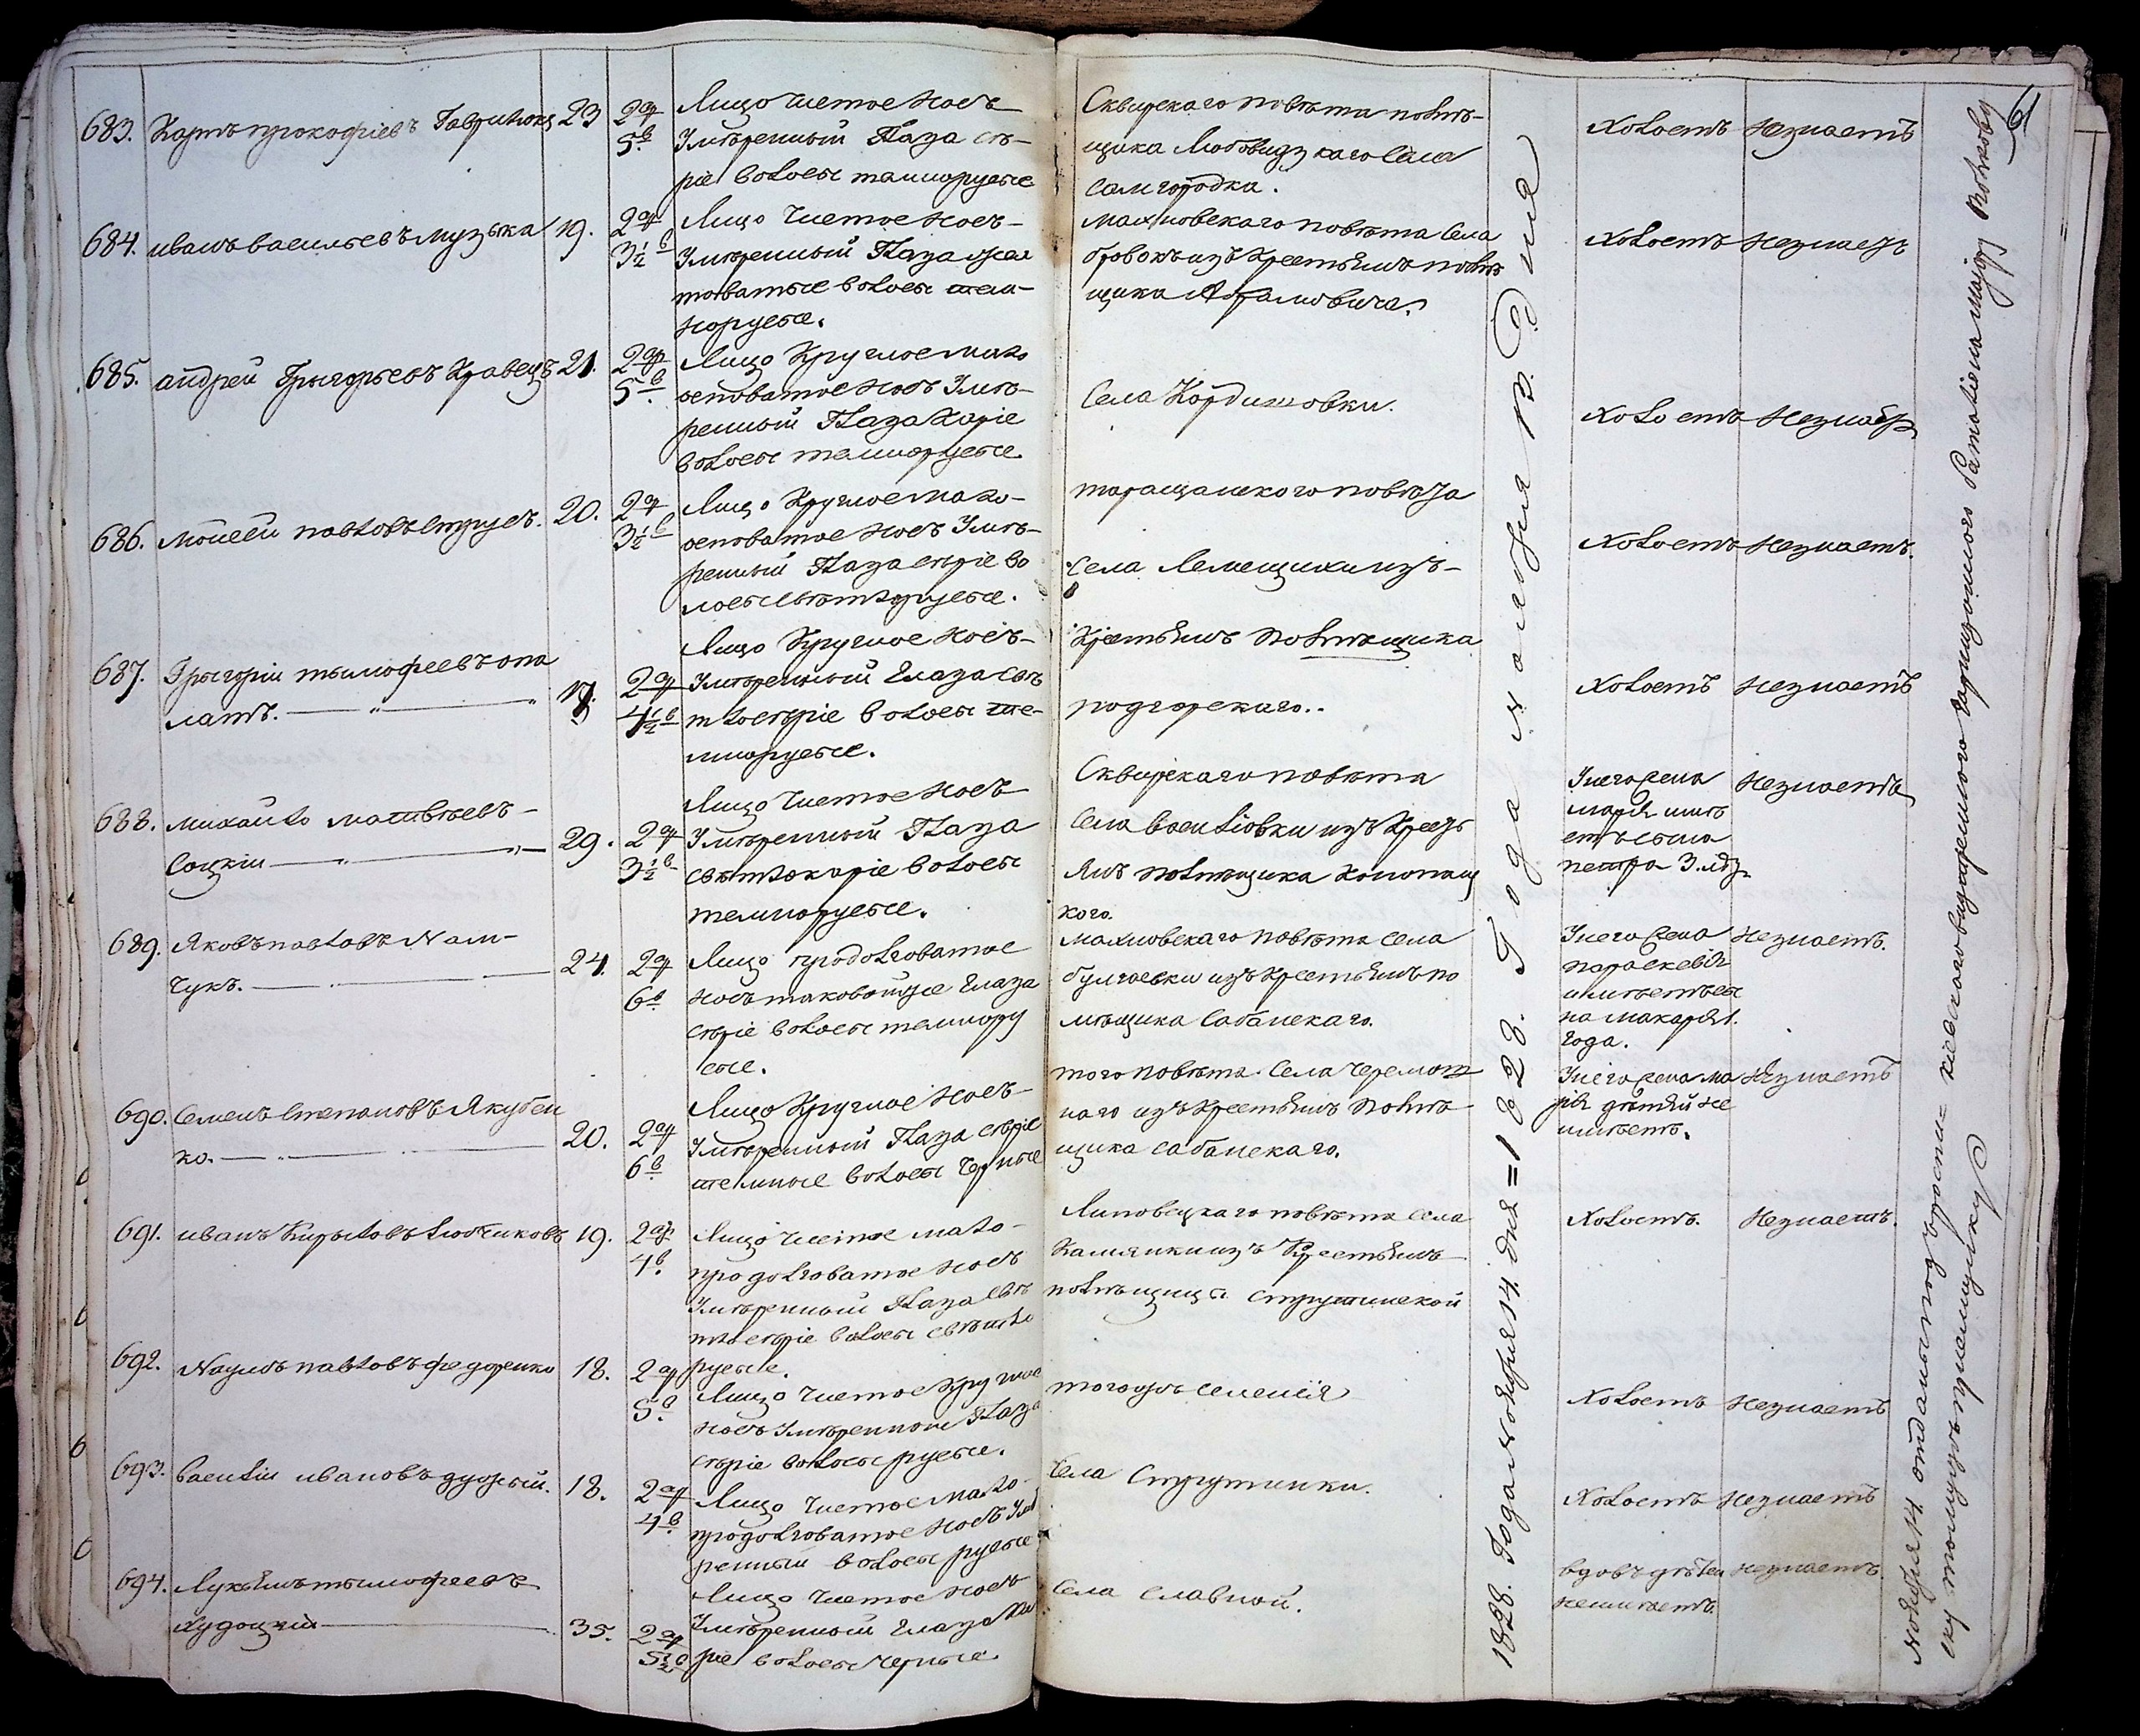 61
683. Карпъ прокофіевъ Гаврилюкъ 23 2 ар 5 в
Лицо чистое носъ
Умѣренный Глаза сѣ-
рые волосы темнорусые
Сквирскаго повѣта помѣ-
щика Любовидзкаго Села
самгородка.
Холостъ Незнаетъ
684. иванъ васильевъ музыка 19. 2 ар 3½ в
Лицо Чистое носъ-
Умѣренный Глаза жел
товатые волосы тем-
норусые.
махновскаго повѣта Села
бровокъ изъ Крестьянъ помѣ
щика Абрамовича.
Холостъ Незнаетъ
685. андрей Григорьевъ Кравецъ 21. 2 ар 5 в
Лицо Круглое мало
осповатое носъ Умѣ-
ренный Глаза Каріе
волосы темнорусые.
Села Кордишовки.
Холостъ Незнаетъ
686. мойсей павловъ струсъ. 20. 2 ар 3½ в
Лицо Круглое мало-
осповатое носъ Умѣ-
ренный Глаза сѣріе во
лосы свѣтлорусые.
таращанского повѣта
Села Лемещихи изъ-
Холостъ Незнаетъ.
687. Григорій тымофеевъ опа
латъ. 2 ар 4½ в
Лицо Круглое носъ-
Умѣренный Глаза свѣ
тлосѣріе волосы те-
мнорусые.
Крестьянъ помѣщика
подгорскаго..
Холостъ Незнаетъ
688. михайло матвѣевъ-
Соцкій 29. 2 ар 3½ в
Лицо Чистое носъ
Умѣренный Глаза
свѣтлокаріе волосы
темнорусые.
Сквирскаго повѣта
Села василіовки изъ Кресть
янъ помѣщика
кого.
Унего жена
марія имѣ
етъ сына
петра 3. лѣтъ
Незнаетъ
689. Яковъ павловъ
чукъ. 24. 2 ар 6 в
Лицо продолговатое
носъ таковойже Глаза
сѣріе волосы темнору
сые.
махновскаго повѣта села
булгаевки изъ Крестьянъ по
мѣщика Сабанскаго.
Унего жена
параскевія
имѣетъ сы
на макарія 1.
года.
Незнаетъ.
690. Семенъ степановъ Якубен
ко. 20. 2 ар 6 в
Лицо Круглое носъ-
Умѣренный Глаза сѣріе
темные волосы Черные
того повѣта Села черемош
наго изъ Крестьянъ помѣ
щика сабанскаго.
Унего жена ма
рія дѣтей не
имѣетъ.
Незнаетъ
691. иванъ Кириловъ любчиковъ 19. 2 ар. 4 в.
Лицо Чистое мало-
продолговатое носъ
Умѣренный Глаза свѣ
тлосѣріе волосы свѣтло
русые.
Липовецкаго повѣта села
Камянки изъ Крестьянъ
помѣщицы струтинской
Холостъ. Незнаетъ.
692. Наумъ павловъ федоренко 18. 2 ар 5 в.
Лицо Чистое Круглое
носъ Умѣренной Глаза
сѣріе волосы русые.
тогожъ селенія
Холостъ Незнаетъ
693. василій ивановъ дужый. 18. 2 ар 4 в.
Лицо Чистое мало-
продолговатое носъ Умѣ
ренный волосы русые
Села Струтинки.
Холостъ Незнаетъ
694. Лукьянъ тымофеевъ
Худоцкій 35. 2 ар 5½ в
Лицо Чистое носъ
Умѣренный Глаза ка
ріе волосы Черные
Села Славной.
вдовъ дѣтей
неимѣетъ.
Незнаетъ.
1828. Года ноября 14. дня = 1828. Года ноября 13. Дня
Ноября 14. отданы подъ росписку кіевскаго внутренного Гарнизонного баталіона маіору Волкову
ику томужъ пріемщику